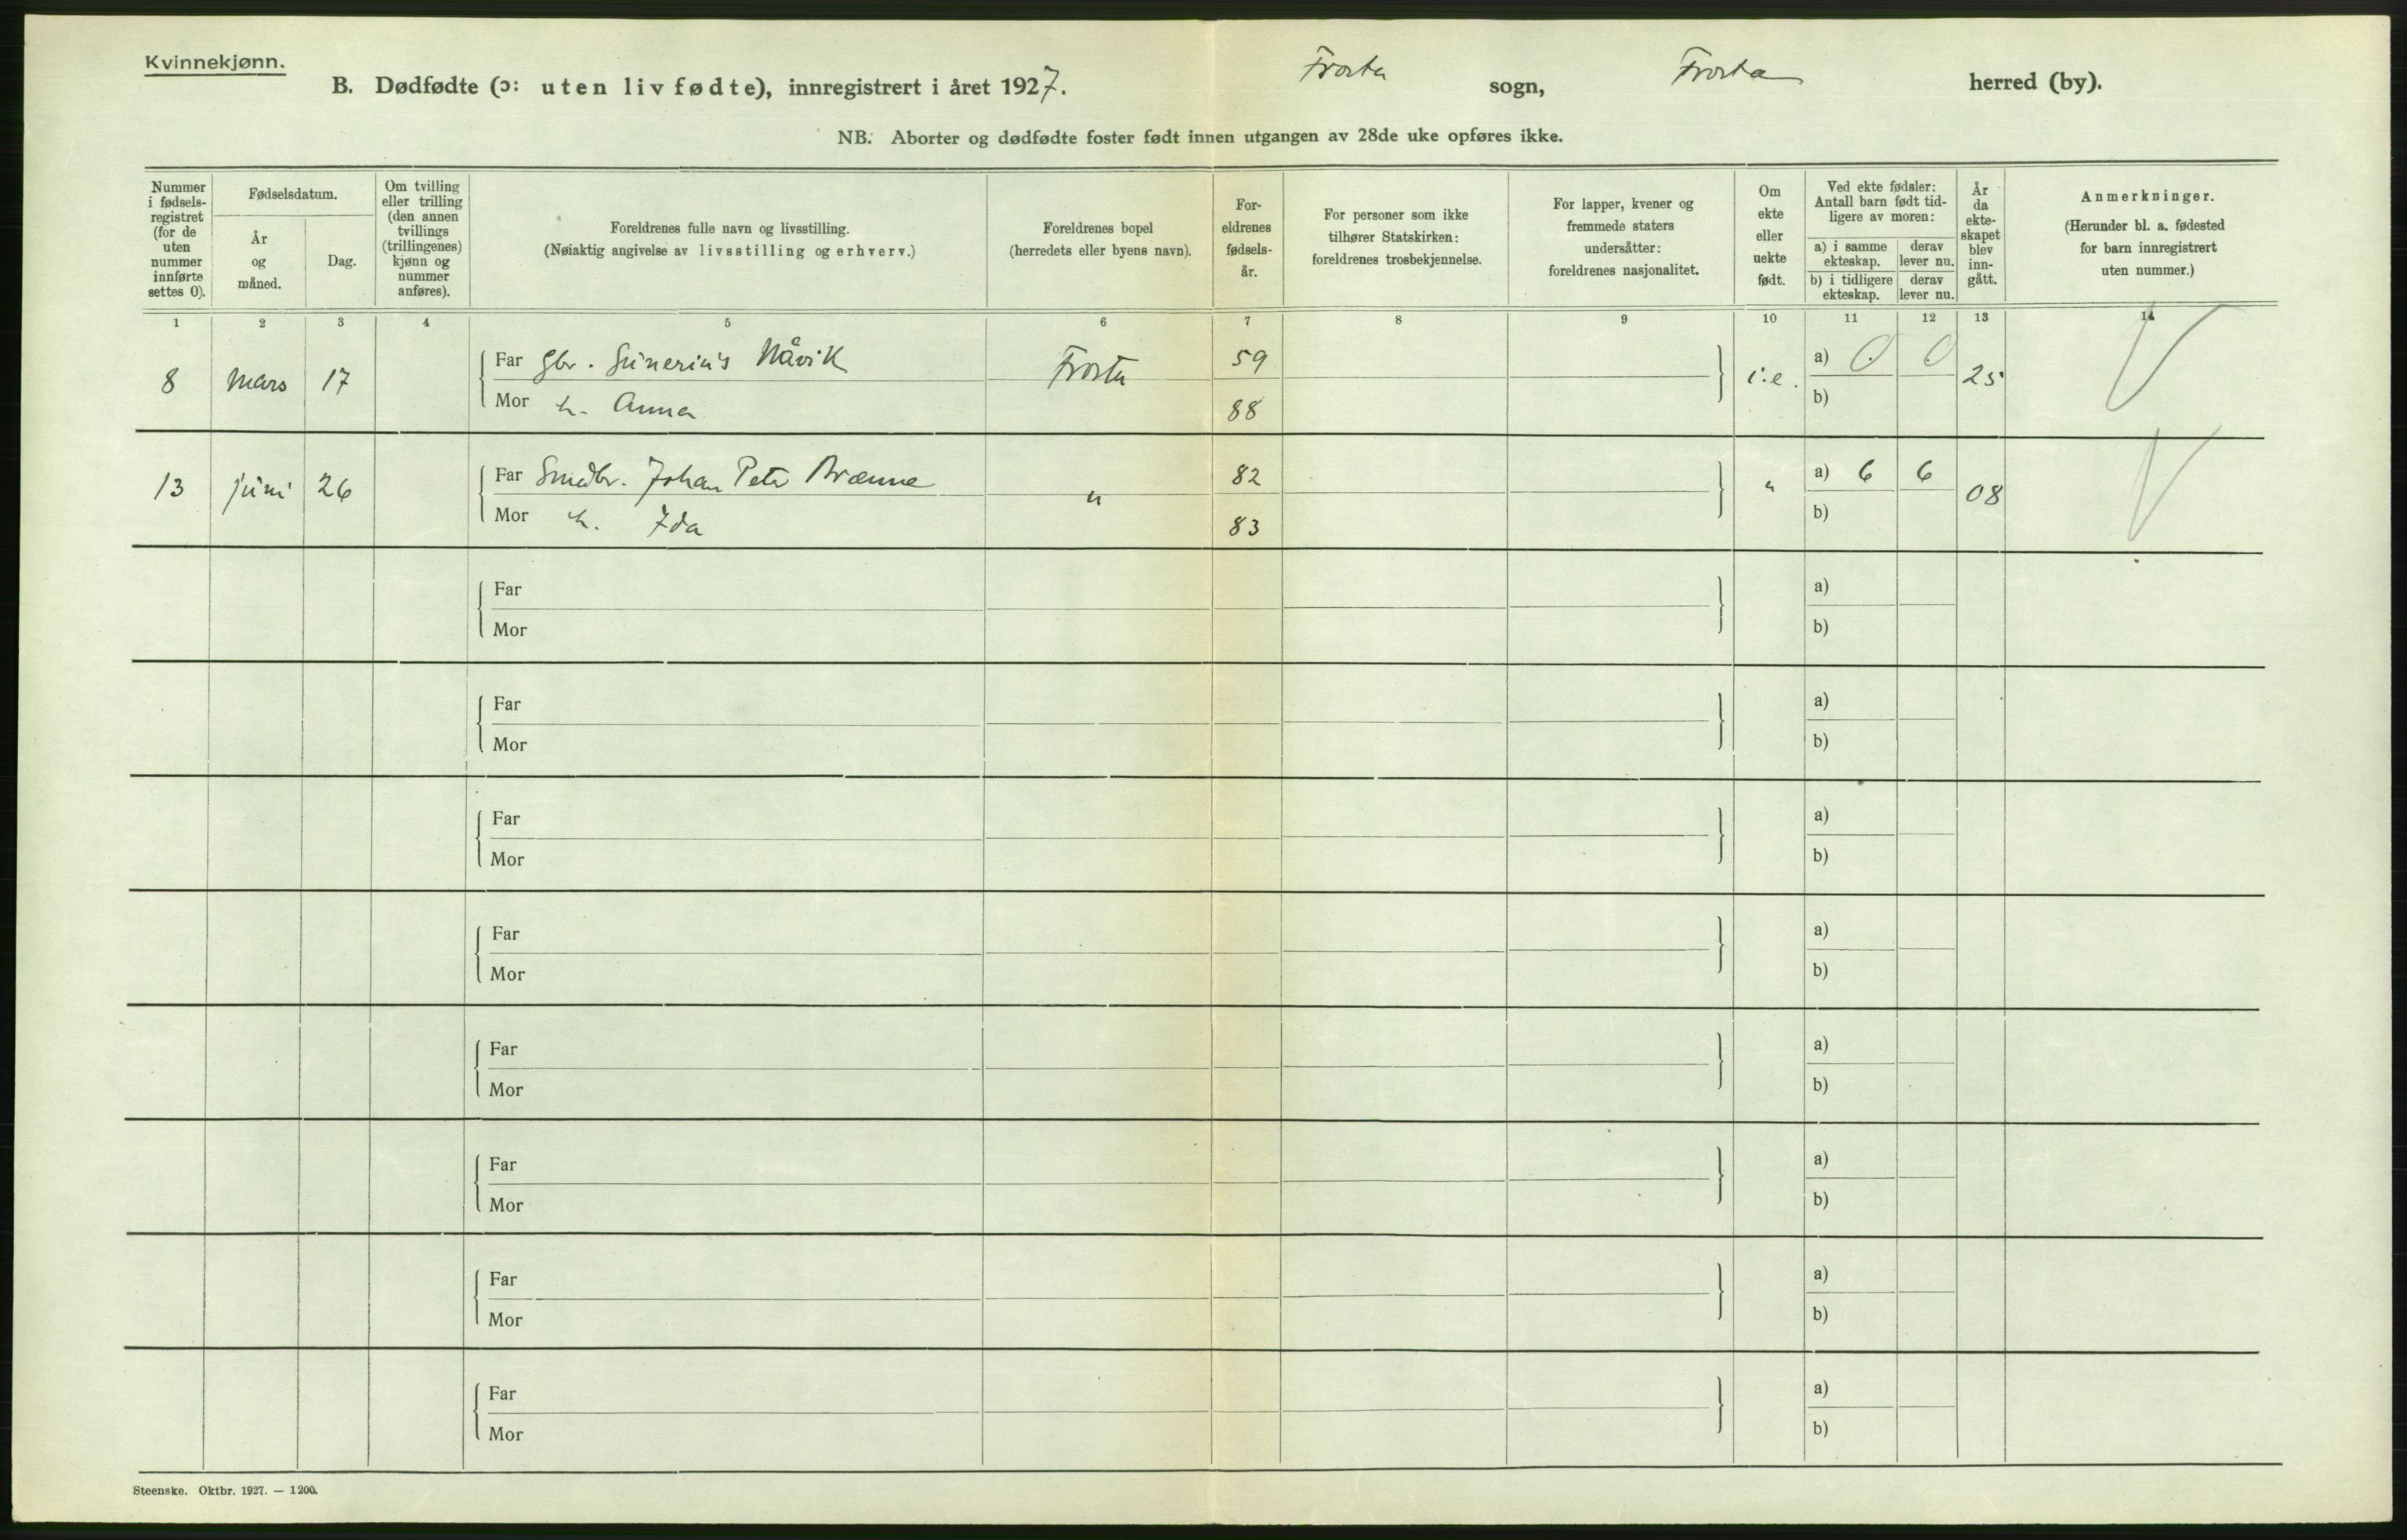 Kvinnekjønn.
B. Dødfødte (ɔ: uten liv fødte), innregistrert i året 1927. Frosta sogn, Frosta herred (by).
NB. Aborter og dødfødte foster født innen utgangen av 28de uke opføres ikke.
Nummer
i fødsels-
registret
(for de
uten
nummer
innførte
settes 0).
Fødselsdatum.
År
og
måned.
Dag.
Om tvilling
eller trilling
(den annen
tvillings
(trillingenes)
kjønn og
nummer
anføres).
Foreldrenes fulle navn og livsstilling.
(Nøiaktig angivelse av livsstilling og erhverv.)
Foreldrenes bopel
(herredets eller byens navn).
For-
eldrenes
fødsels-
år.
For personer som ikke
tilhører Statskirken:
foreldrenes trosbekjennelse.
For lapper, kvener og
fremmede staters
undersåtter:
foreldrenes nasjonalitet.
Om
ekte
eller
uekte
født.
Ved ekte fødsler:
Antall barn født tid-
ligere av moren:
a) i samme
ekteskap.
derav
lever nu.
b) i tidligere
ekteskap.
derav
lever nu.
År
da
ekte-
skapet
blev
inn-
gått.
Anmerkninger.
(Herunder bl. a. fødested
for barn innregistrert
uten nummer.)
1 2 3 4 5 6 7 8 9 10 11 12 13 14
Far gbr. Günerius Håvik 59 a) 0 0
8 Mars 17 Frosta i.e. 25
Mor h. Anna 88 b)
Far Smedbr. Johan Peter Brænne 82 a) 6 6
13 juni 26 " " 08
Mor h. Ida 83 b)
Far a)
Mor b)
Far a)
Mor b)
Far a)
Mor b)
Far a)
Mor b)
Far a)
Mor b)
Far a)
Mor b)
Far a)
Mor b)
Far a)
Mor b)
Steenske. Oktbr. 1927. — 1200.